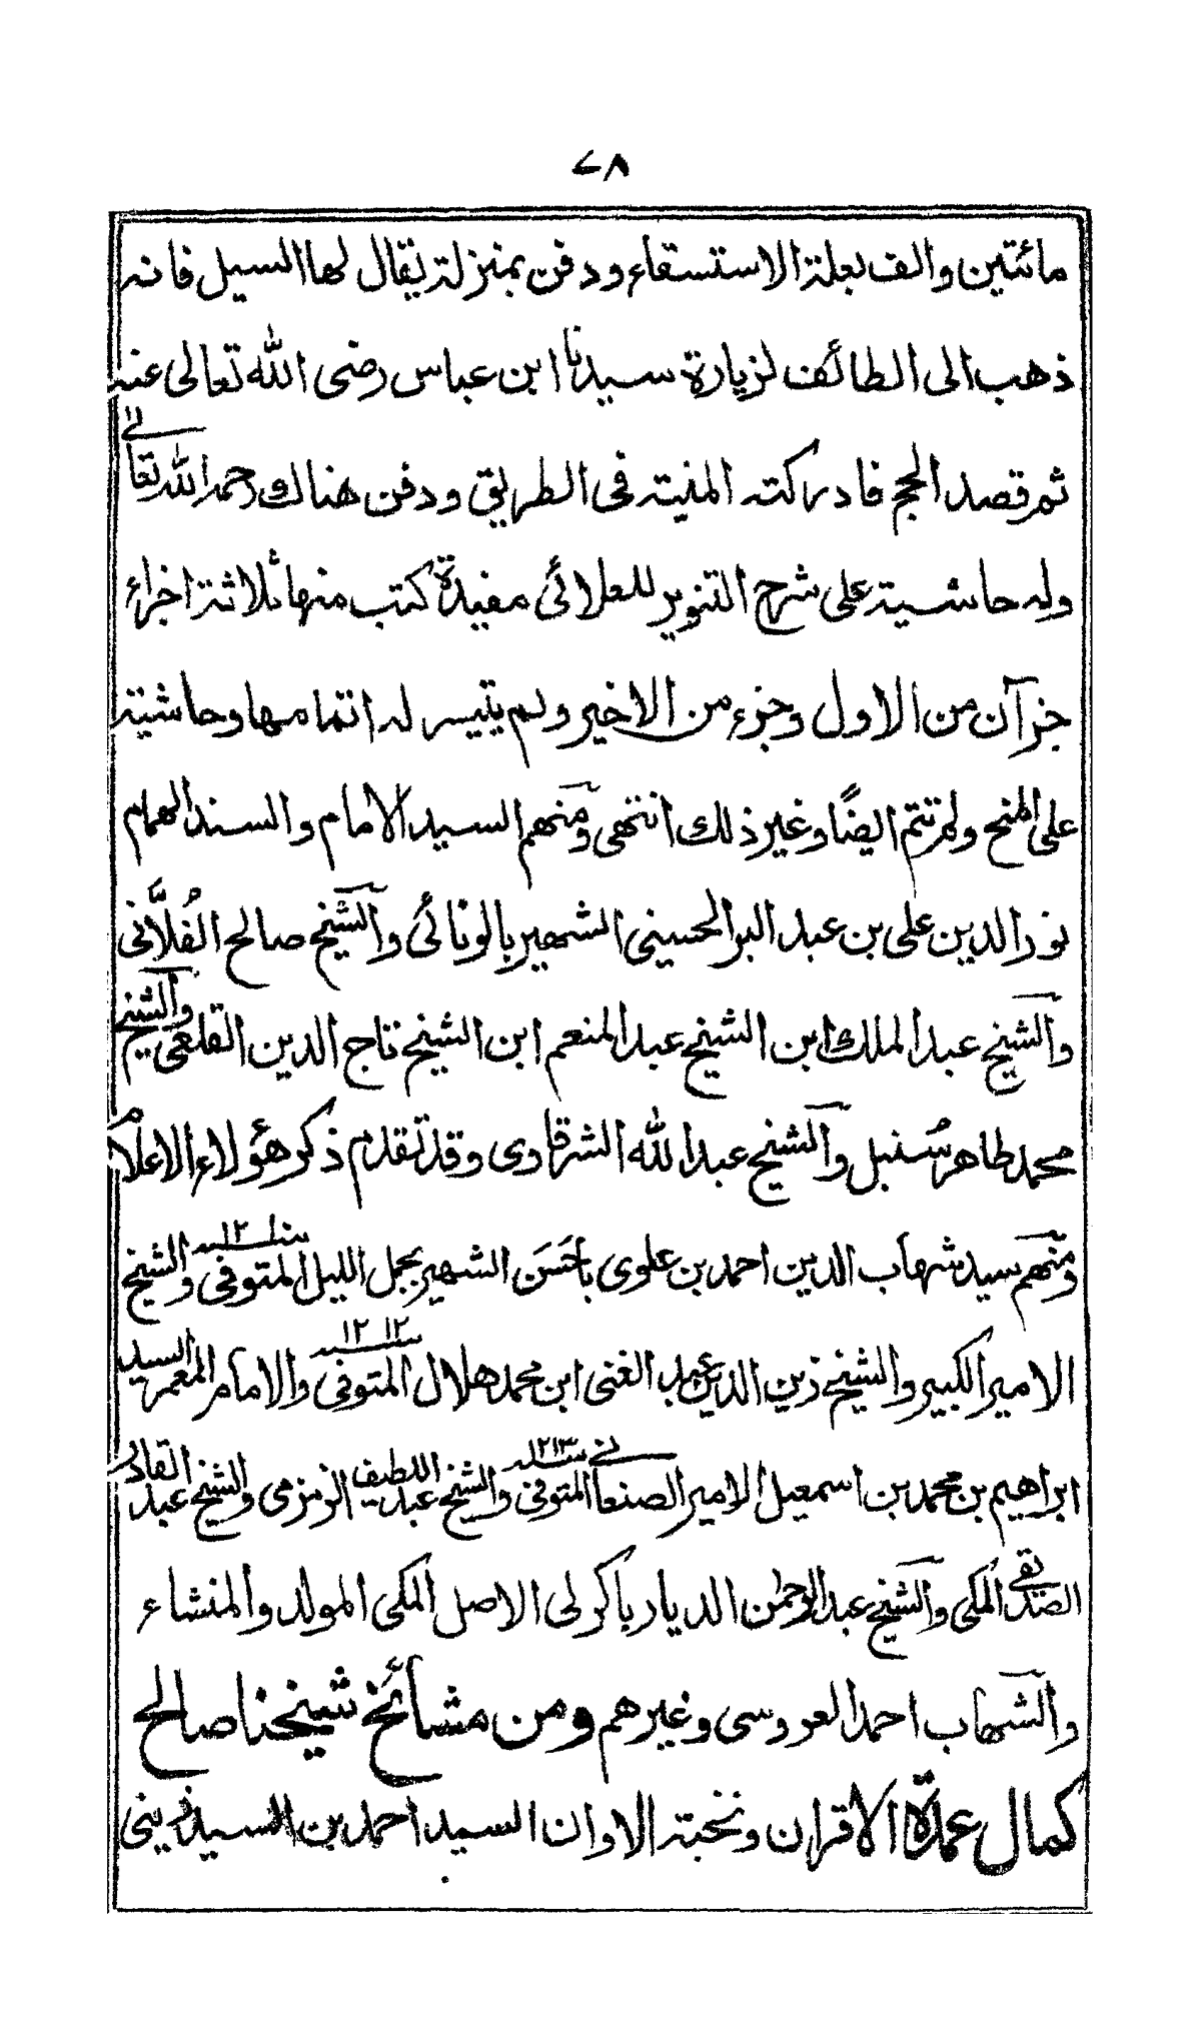 ٧٨
مائتين والف بعلة الاستسقاء ودفن بمنزلة يقال لها السيل فانه
ذهب الى الطائف لزيارة سيدنا ابن عباس رضى الله تعالى عنه
ثم قصد الحج فادركته المنية فى الطريق ودفن هناك رحمه الله تعالى
وله حاشية على شرح التنوير للعلائى مفيدة كتب منها ثلاثة اجزاء
جزآن من الاول وجزء من الاخير ولم يتيسر له اتمامها وحاشية
على المنح ولم تتم ايضًا وغير ذلك انتهى ومنهم السيد الامام والسند الهمام
نور الدين على بن عبد البر الحسينى الشهير بالونائى والشيخ صالح الفُلَّانى
والشيخ عبد الملك ابن الشيخ عبد المنعم ابن الشيخ تاج الدين القلعى والشيخ
محمد طاهر سُنبل والشيخ عبد الله الشرقاوى وقد تقدم ذكر هؤلاء الاعلام
ومنهم سيد شهاب الدين احمد بن علوى باحَسَن الشهير بجمل الليل المتوفى سنة ١٢١٠ والشيخ
الامير الكبير والشيخ زين الدين عبد الغنى ابن محمد هلال المتوفى سنة ١٢١٢ والامام المعمر السيد
ابراهيم بن محمد بن اسمعيل الامير الصنعانى المتوفى سنة ١٢١٣ والشيخ عبد اللطيف الزمزمى والشيخ عبد القادر
الصديقى المكى والشيخ عبد الرحمن الديار باكرلى الاصل المكى المولد والمنشاء
والشهاب احمد العروسى وغيرهم ومن مشائخ شيخنا صالح
كمال عمدة الاقران ونخبة الاوان السيد احمد بن السيد زينى